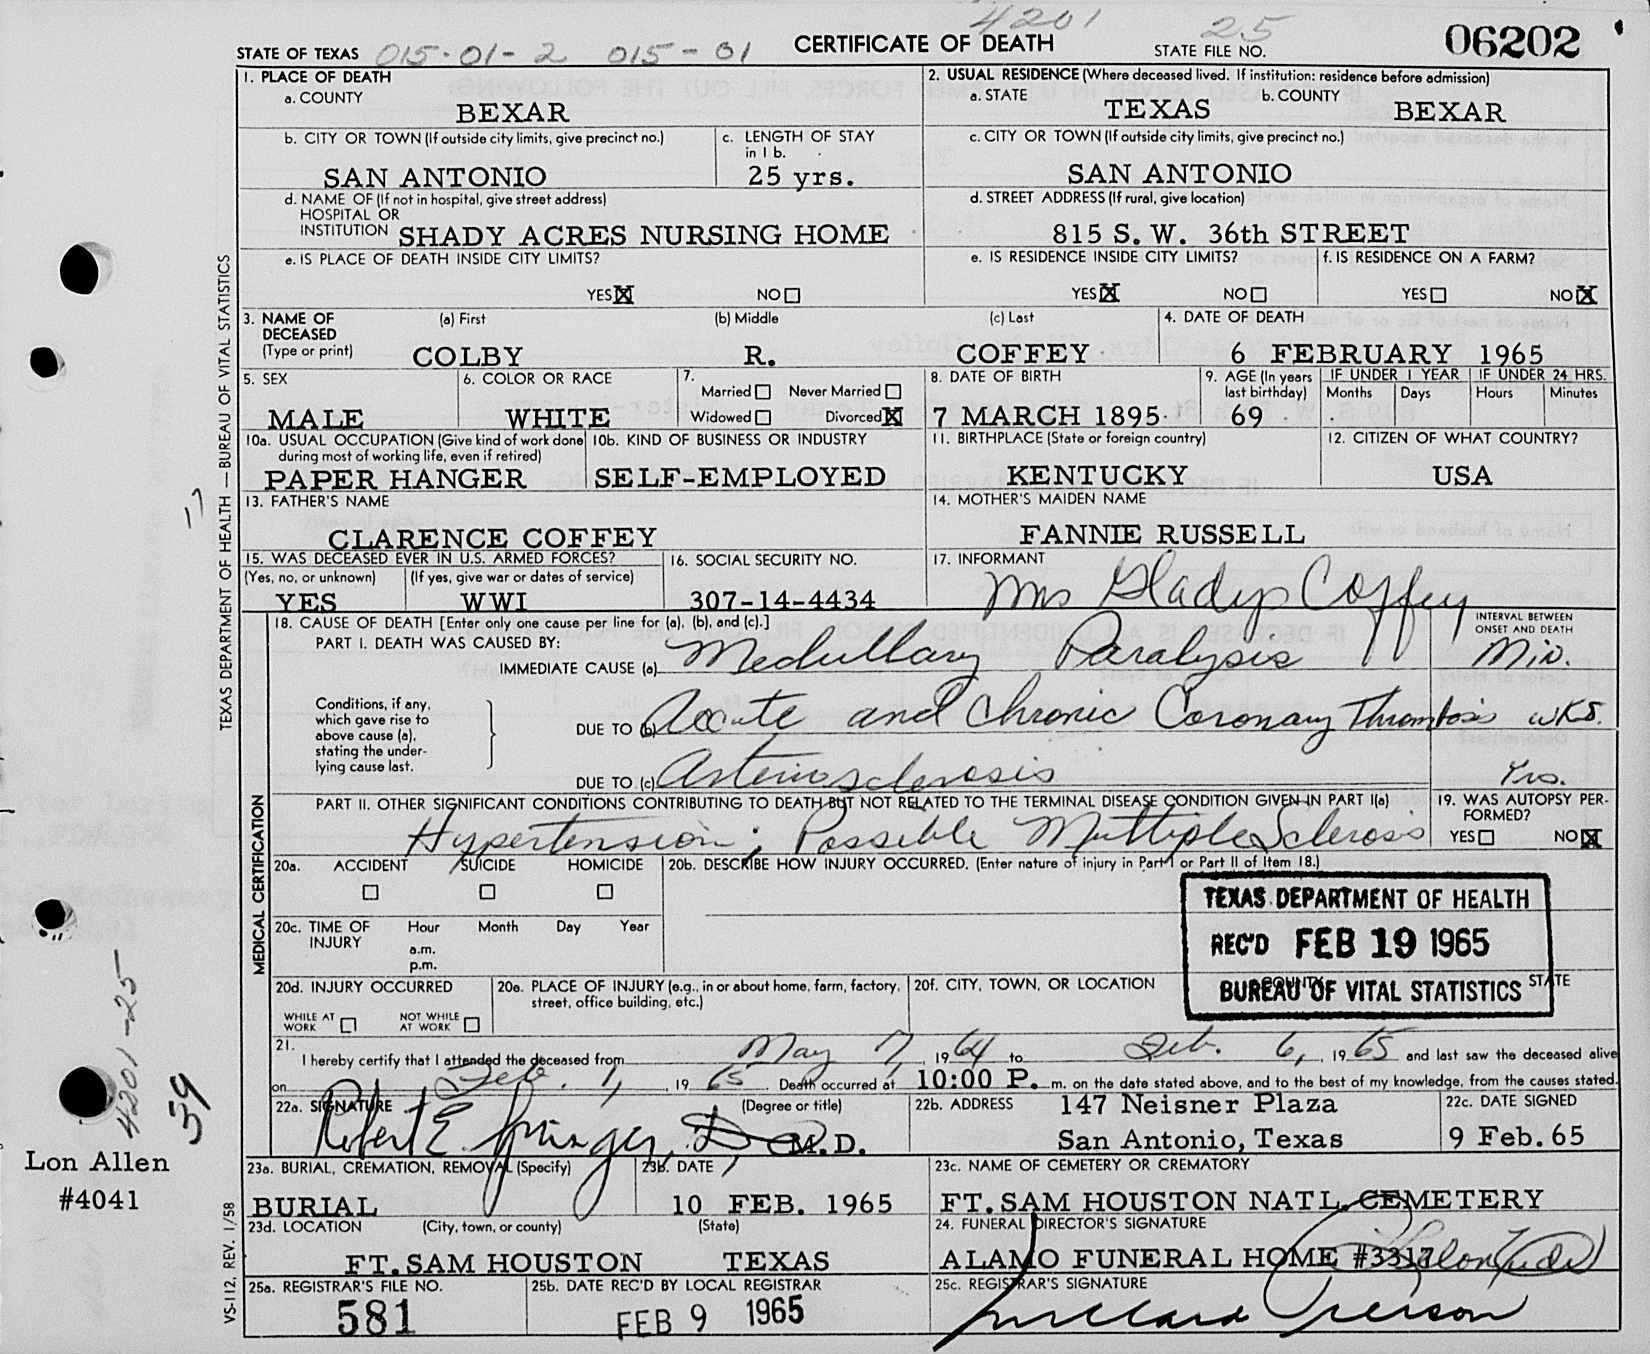 4201 25
STATE OF TEXAS 015-01-2 015-01 CERTIFICATE OF DEATH STATE FILE NO. 06202
1. PLACE OF DEATH
a. COUNTY
BEXAR
2. USUAL RESIDENCE (Where deceased lived. If institution: residence before admission)
a. STATE b. COUNTY
TEXAS BEXAR
b. CITY OR TOWN (If outside city limits, give precinct no.) c. LENGTH OF STAY in 1 b.
SAN ANTONIO 25 yrs.
c. CITY OR TOWN (If outside city limits, give precinct no.)
SAN ANTONIO
d. NAME OF (If not in hospital, give street address)
HOSPITAL OR
INSTITUTION SHADY ACRES NURSING HOME
d. STREET ADDRESS (If rural, give location)
815 S. W. 36th STREET
e. IS PLACE OF DEATH INSIDE CITY LIMITS?
YES X NO
e. IS RESIDENCE INSIDE CITY LIMITS? f. IS RESIDENCE ON A FARM?
YES X NO YES NO X
3. NAME OF DECEASED (Type or print) (a) First (b) Middle (c) Last 4. DATE OF DEATH
COLBY R. COFFEY 6 FEBRUARY 1965
5. SEX 6. COLOR OR RACE 7. Married Never Married
MALE WHITE Widowed Divorced X
8. DATE OF BIRTH 9. AGE (In years last birthday) IF UNDER 1 YEAR IF UNDER 24 HRS.
Months Days Hours Minutes
7 MARCH 1895 69
10a. USUAL OCCUPATION (Give kind of work done during most of working life, even if retired) 10b. KIND OF BUSINESS OR INDUSTRY
PAPER HANGER SELF-EMPLOYED
11. BIRTHPLACE (State or foreign country) 12. CITIZEN OF WHAT COUNTRY?
KENTUCKY USA
13. FATHER'S NAME 14. MOTHER'S MAIDEN NAME
CLARENCE COFFEY FANNIE RUSSELL
15. WAS DECEASED EVER IN U.S. ARMED FORCES? 16. SOCIAL SECURITY NO. 17. INFORMANT
(Yes, no, or unknown) (If yes, give war or dates of service)
YES WWI 307-14-4434 Mrs Gladys Coffey
18. CAUSE OF DEATH [Enter only one cause per line for (a), (b), and (c).] INTERVAL BETWEEN ONSET AND DEATH
PART I. DEATH WAS CAUSED BY:
IMMEDIATE CAUSE (a) Medullary Paralysis Min.
Conditions, if any, which gave rise to above cause (a), stating the underlying cause last.
DUE TO (b) Acute and Chronic Coronary Thrombosis wks.
DUE TO (c) Arteriosclerosis Yrs.
PART II. OTHER SIGNIFICANT CONDITIONS CONTRIBUTING TO DEATH BUT NOT RELATED TO THE TERMINAL DISEASE CONDITION GIVEN IN PART I(a) 19. WAS AUTOPSY PERFORMED?
Hypertension; Possible Multiple Sclerosis YES NO X
20a. ACCIDENT SUICIDE HOMICIDE 20b. DESCRIBE HOW INJURY OCCURRED. (Enter nature of injury in Part I or Part II of Item 18.)
20c. TIME OF INJURY Hour Month Day Year
a.m.
p.m.
TEXAS DEPARTMENT OF HEALTH
REC'D FEB 19 1965
BUREAU OF VITAL STATISTICS
20d. INJURY OCCURRED 20e. PLACE OF INJURY (e.g., in or about home, farm, factory, street, office building, etc.) 20f. CITY, TOWN, OR LOCATION COUNTY STATE
WHILE AT WORK NOT WHILE AT WORK
21. I hereby certify that I attended the deceased from May 7, 1964 to Feb. 6, 1965 and last saw the deceased alive
on Feb. 1, 1965. Death occurred at 10:00 P. m. on the date stated above, and to the best of my knowledge, from the causes stated.
22a. SIGNATURE (Degree or title) 22b. ADDRESS 22c. DATE SIGNED
Robert E. Springer, M.D. 147 Neisner Plaza
San Antonio, Texas 9 Feb. 65
23a. BURIAL, CREMATION, REMOVAL (Specify) 23b. DATE 23c. NAME OF CEMETERY OR CREMATORY
BURIAL 10 FEB. 1965 FT. SAM HOUSTON NATL. CEMETERY
23d. LOCATION (City, town, or county) (State) 24. FUNERAL DIRECTOR'S SIGNATURE
FT. SAM HOUSTON TEXAS ALAMO FUNERAL HOME #3317
25a. REGISTRAR'S FILE NO. 25b. DATE REC'D BY LOCAL REGISTRAR 25c. REGISTRAR'S SIGNATURE
581 FEB 9 1965
TEXAS DEPARTMENT OF HEALTH — BUREAU OF VITAL STATISTICS
MEDICAL CERTIFICATION
VS-112, REV. 1/58
17
4201-25
39
Lon Allen
#4041